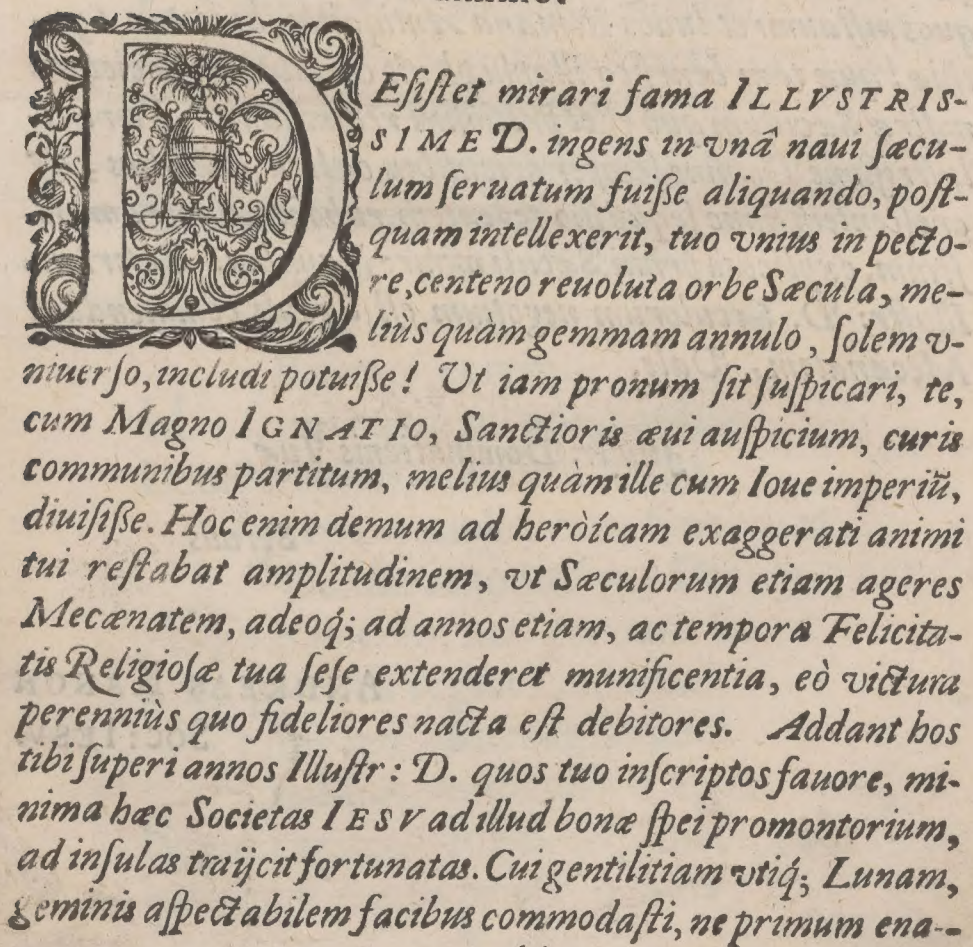 DEſiſtet mirari fama ILLVSTRIS-
SIME D. ingens in vnâ naui ſæcu-
lum ſeruatum fuiſſe aliquando, poſt-
quam intellexerit, tuo vnius in pecto-
re, centeno reuoluta orbe Sæcula, me-
liùs quàm gemmam annulo, ſolem v-
niuerſo, includi potuiſſe! Ut iam pronum ſit ſuſpicari, te,
cum Magno IGNATIO, Sanctioris æui auſpicium, curis
communibus partitum, melius quàm ille cum Ioue imperiũ,
diuiſiſſe. Hoc enim demum ad heròícam exaggerati animi
tui reſtabat amplitudinem, vt Sæculorum etiam ageres
Mecænatem, adeoq́; ad annos etiam, ac tempora Felicita-
tis Religioſæ tua ſeſe extenderet munificentia, eò victura
perenniùs quo fideliores nacta eſt debitores. Addant hos
tibi ſuperi annos Illuſtr: D. quos tuo inſcriptos fauore, mi-
nima hæc Societas IESV ad illud bonæ ſpei promontorium,
ad inſulas traijcit fortunatas. Cui gentilitiam vtiq́; Lunam,
geminis aſpectabilem facibus commodaſti, ne primum ena-